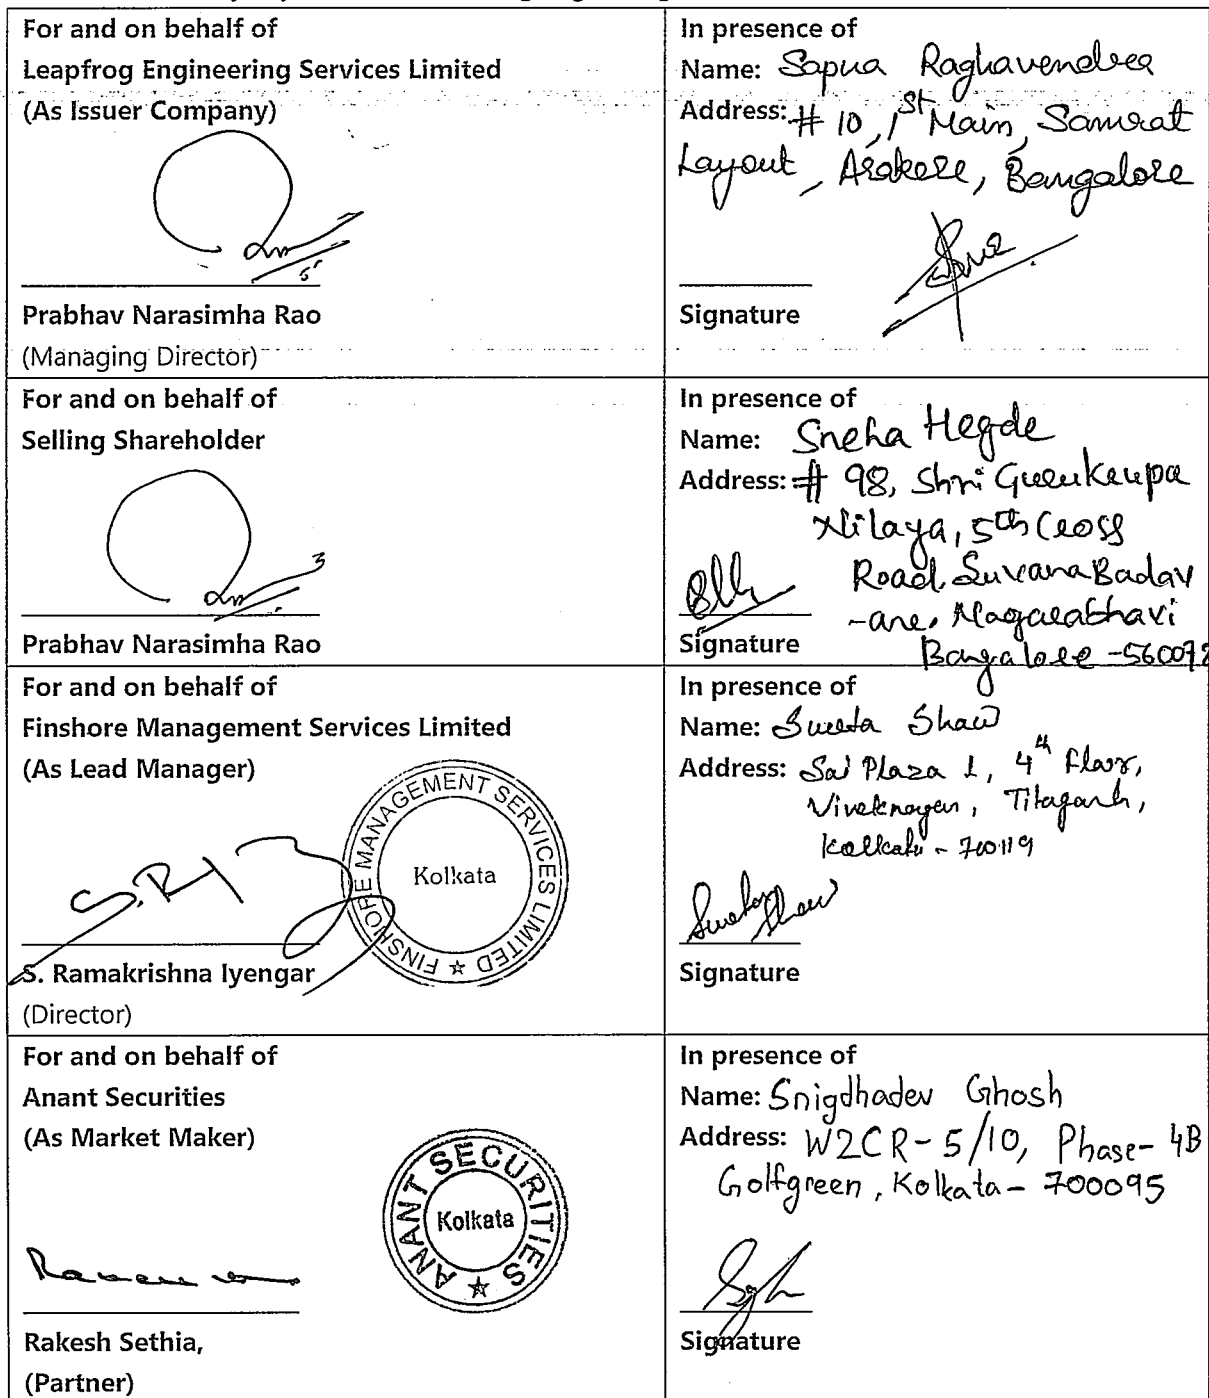 For and on behalf of
Leapfrog Engineering Services Limited
(As Issuer Company)
Prabhav Narasimha Rao
(Managing Director)
In presence of
Name: Sapna Raghavendra
Address: # 10, 1st Main, Samrat
Layout, Arakere, Bangalore
Signature
For and on behalf of
Selling Shareholder
Prabhav Narasimha Rao
In presence of
Name: Sneha Hegde
Address: # 98, Shri Gurukrupa
Nilaya, 5th Cross
Road, Suvarna Badav
-ane, Nagarabhavi
Bangalore - 560072
Signature
For and on behalf of
Finshore Management Services Limited
(As Lead Manager)
FINSHORE MANAGEMENT SERVICES LIMITED
Kolkata
S. Ramakrishna Iyengar
(Director)
In presence of
Name: Sweta Shaw
Address: Sai Plaza 1, 4th Floor,
Viveknagar, Titagarh,
Kolkata - 700119
Sweta Shaw
Signature
For and on behalf of
Anant Securities
(As Market Maker)
ANANT SECURITIES
Kolkata
Rakesh Sethia,
(Partner)
In presence of
Name: Snigdhadev Ghosh
Address: W2CR - 5/10, Phase - 4B
Golfgreen, Kolkata - 700095
Signature